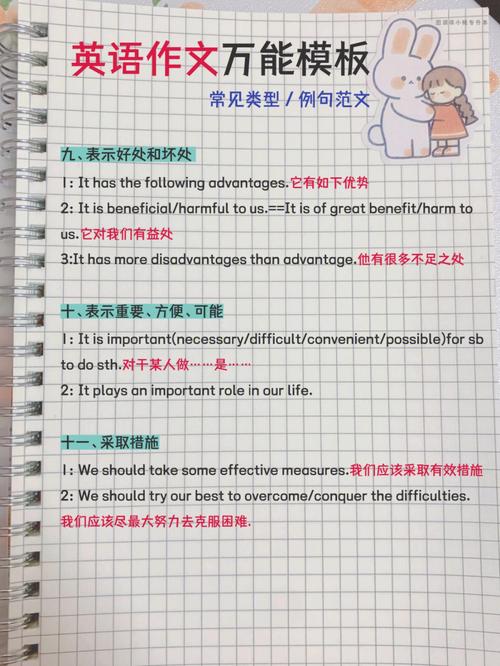 英语作文万能模板
常见类型 / 例句范文
九、表示好处和坏处
1: It has the following advantages.它有如下优势
2: It is beneficial/harmful to us.==It is of great benefit/harm to
us.它对我们有益处
3:It has more disadvantages than advantage.他有很多不足之处
十、表示重要、方便、可能
1: It is important(necessary/difficult/convenient/possible)for sb
to do sth.对干某人做……是……
2: It plays an important role in our life.
十一、采取措施
1: We should take some effective measures.我们应该采取有效措施
2: We should try our best to overcome/conquer the difficulties.
我们应该尽最大努力去克服困难.